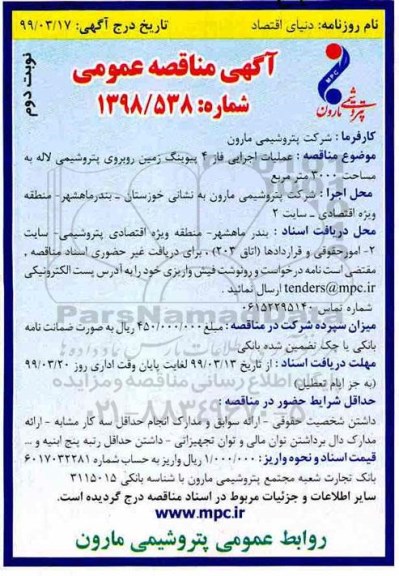 نام روزنامه: دنیای اقتصاد
تاریخ درج آگهی: ۹۹/۰۳/۱۷
نوبت دوم
آگهی مناقصه عمومی
شماره: ۱۳۹۸/۵۳۸
MPC
پتروشیمی مارون
کارفرما : شرکت پتروشیمی مارون
موضوع مناقصه : عملیات اجرایی فاز ۴ پیوینگ زمین روبروی پتروشیمی لاله به
مساحت ۳۰۰۰ متر مربع
محل اجرا : شرکت پتروشیمی مارون به نشانی خوزستان ـ بندرماهشهر- منطقه
ویژه اقتصادی ـ سایت ۲
محل دریافت اسناد : بندر ماهشهر- منطقه ویژه اقتصادی پتروشیمی- سایت
۲- امورحقوقی و قراردادها (اتاق ۲۰۳) ، برای دریافت غیر حضوری اسناد مناقصه ,
مقتضی است نامه درخواست و رونوشت فیش واریزی خود را به آدرس پست الکترونیکی
tenders@mpc.ir ارسال نمائید .
شماره تماس : ۰۶۱۵۲۲۹۵۱۴۰
میزان سپرده شرکت در مناقصه : مبلغ ۴۵۰/۰۰۰/۰۰۰ ریال به صورت ضمانت نامه
بانکی یا چک تضمین شده بانکی
مهلت دریافت اسناد : از تاریخ ۹۹/۰۳/۱۳ لغایت پایان وقت اداری روز ۹۹/۰۳/۲۰
(به جز ایام تعطیل)
حداقل شرایط حضور در مناقصه :
داشتن شخصیت حقوقی - ارائه سوابق و مدارک انجام حداقل سه کار مشابه - ارائه
مدارک دال برداشتن توان مالی و توان تجهیزاتی - داشتن حداقل رتبه پنج ابنیه و ...
قیمت اسناد و نحوه واریز : ۱/۰۰۰/۰۰۰ ریال واریز به حساب شماره ۶۰۱۷۰۳۲۲۸۱
بانک تجارت شعبه مجتمع پتروشیمی مارون با شناسه بانکی ۳۱۱۵۰۱۵
سایر اطلاعات و جزئیات مربوط در اسناد مناقصه درج گردیده است.
www.mpc.ir
روابط عمومی پتروشیمی مارون
ParsNamadData
۰۲۱-۸۸۳۴۹۶۷۰-۵